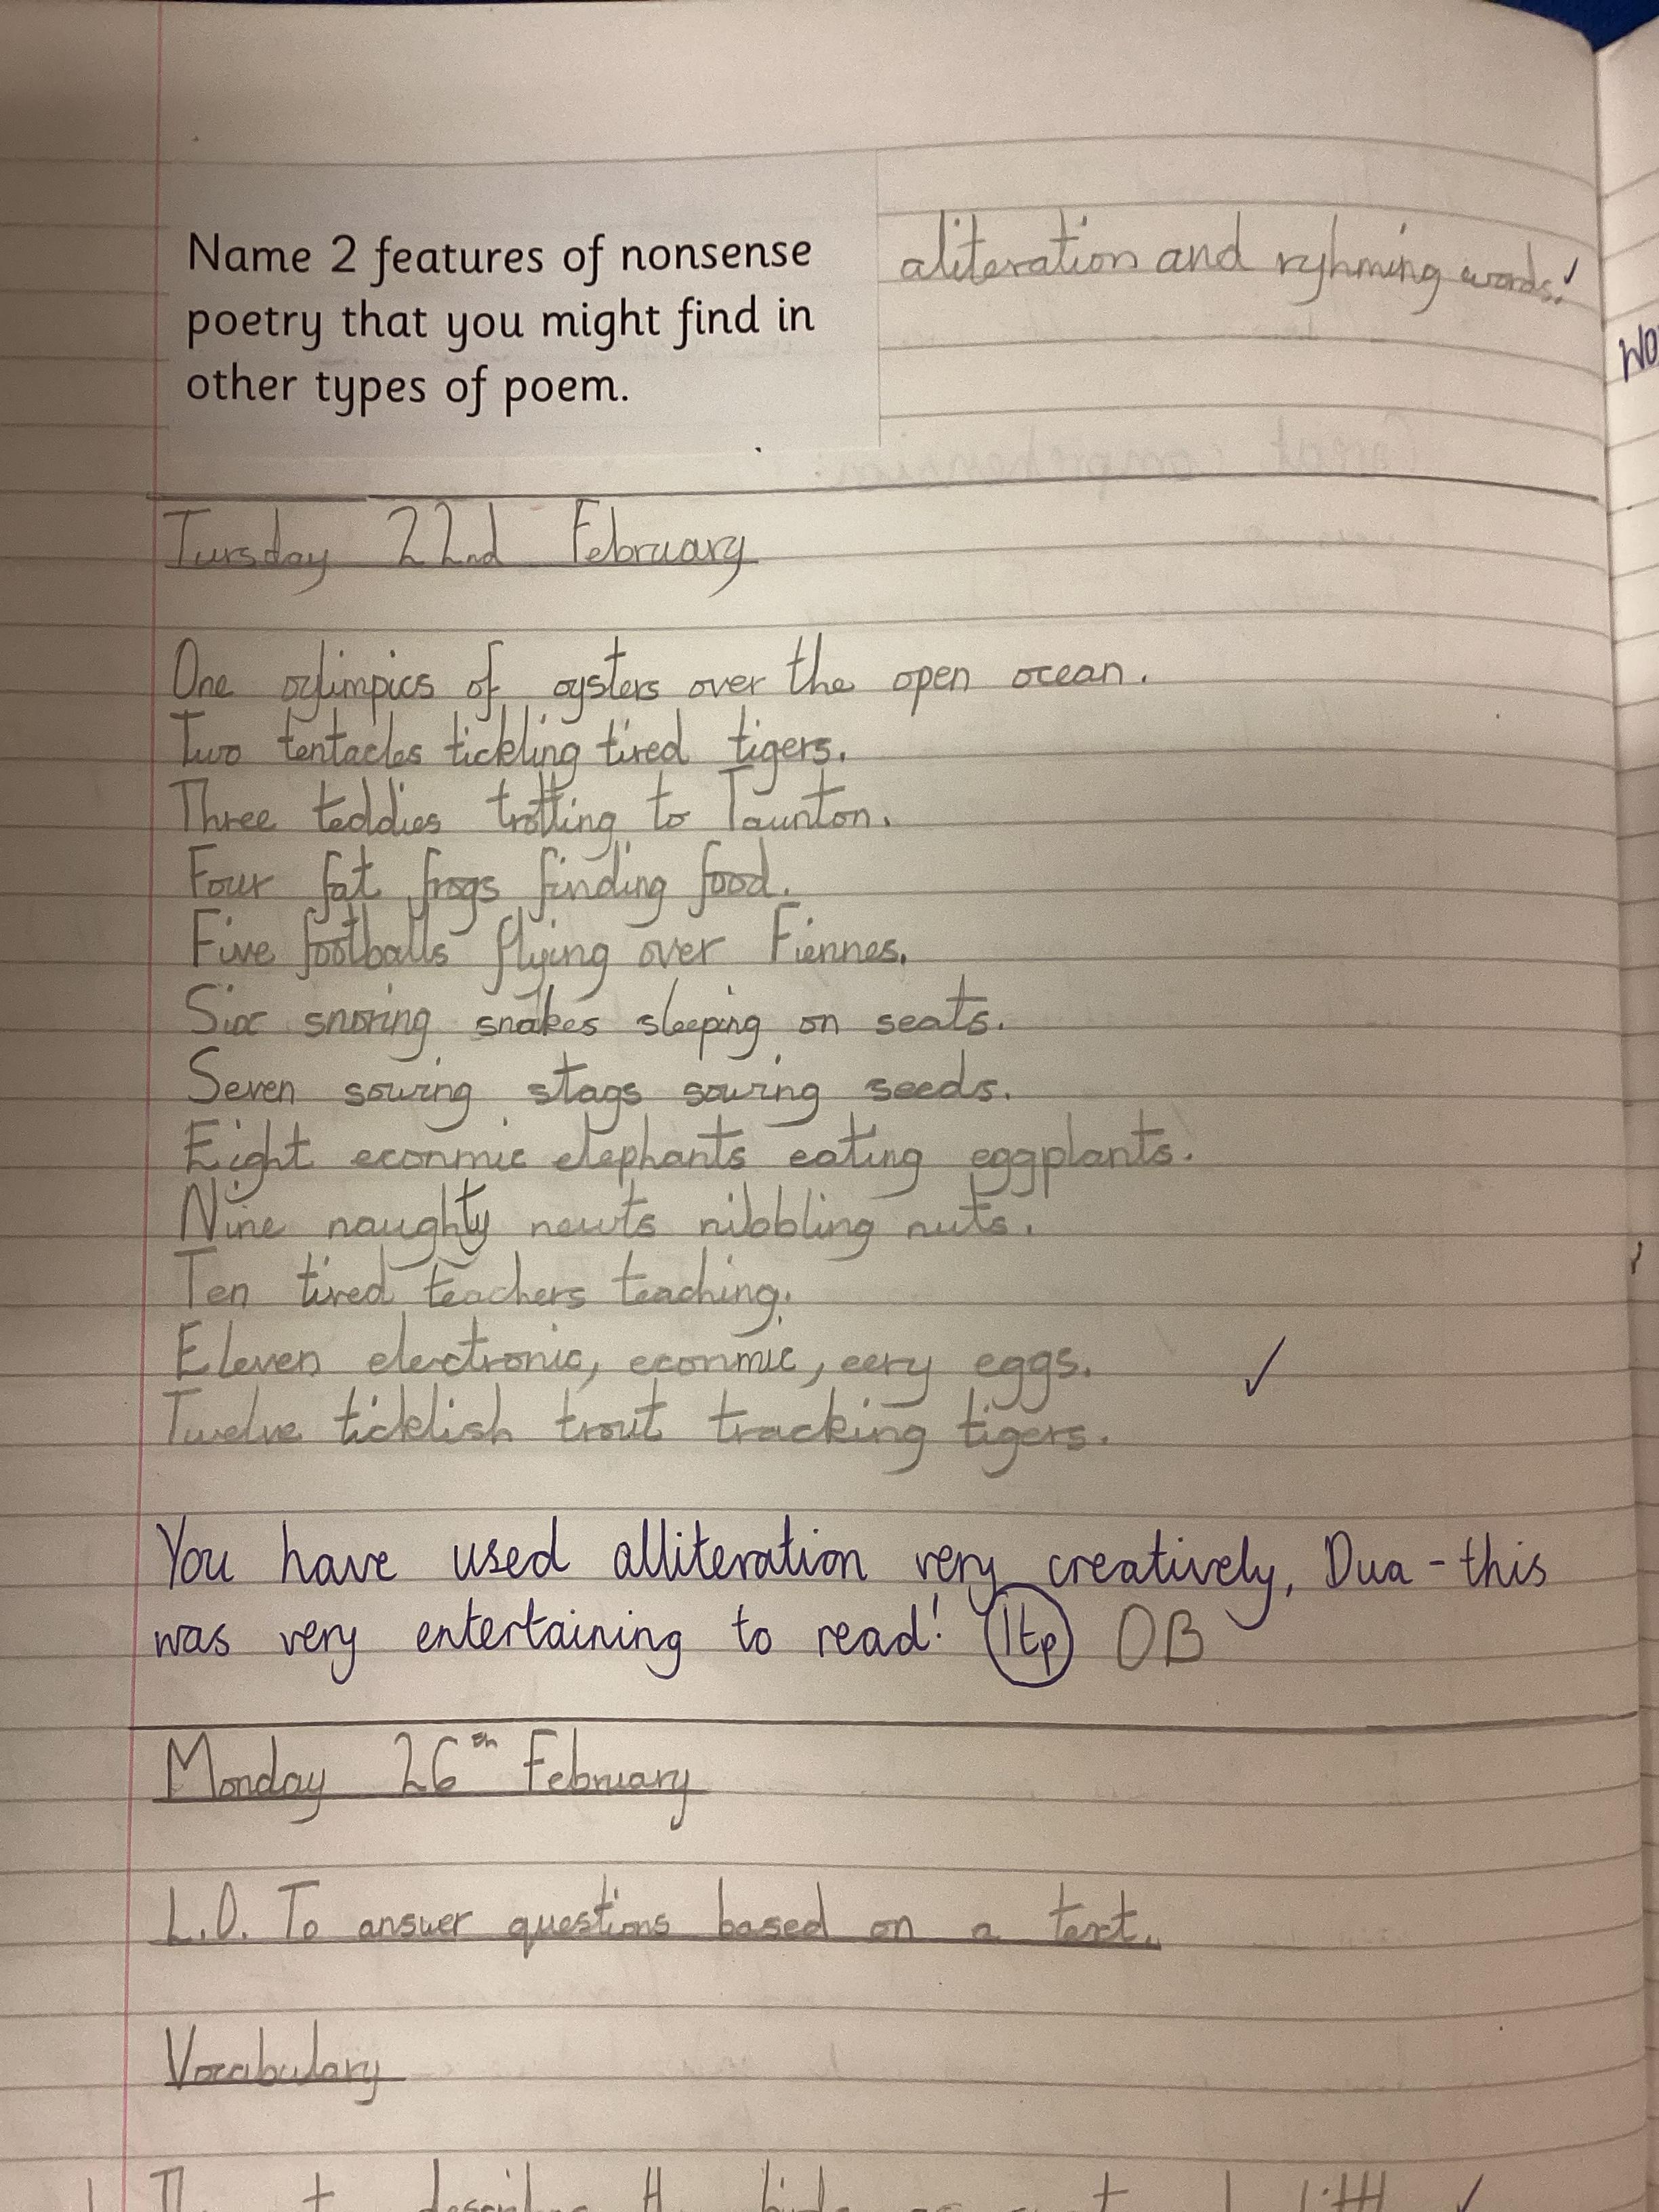 Name 2 features of nonsense
poetry that you might find in
other types of poem.
aliteration and ryhming words.
Tursday 22nd February
One oylimpics of oysters over the open ocean.
Two tentacles tickling tired tigers.
Three teddies trotting to Taunton.
Four fat frogs finding food.
Five footballs flying over Fiennes.
Six snoring snakes sleeping on seats.
Seven sowing stags sowing seeds.
Eight econmic elephants eating eggplants.
Nine naughty newts nibbling nuts.
Ten tired teachers teaching.
Eleven electronic, econmic, eery eggs.
Twelve ticklish trout tracking tigers.
You have used alliteration very creatively, Dua - this
was very entertaining to read! 1tp OB
Monday 26th February
L.O. To answer questions based on a text.
Vocabulary